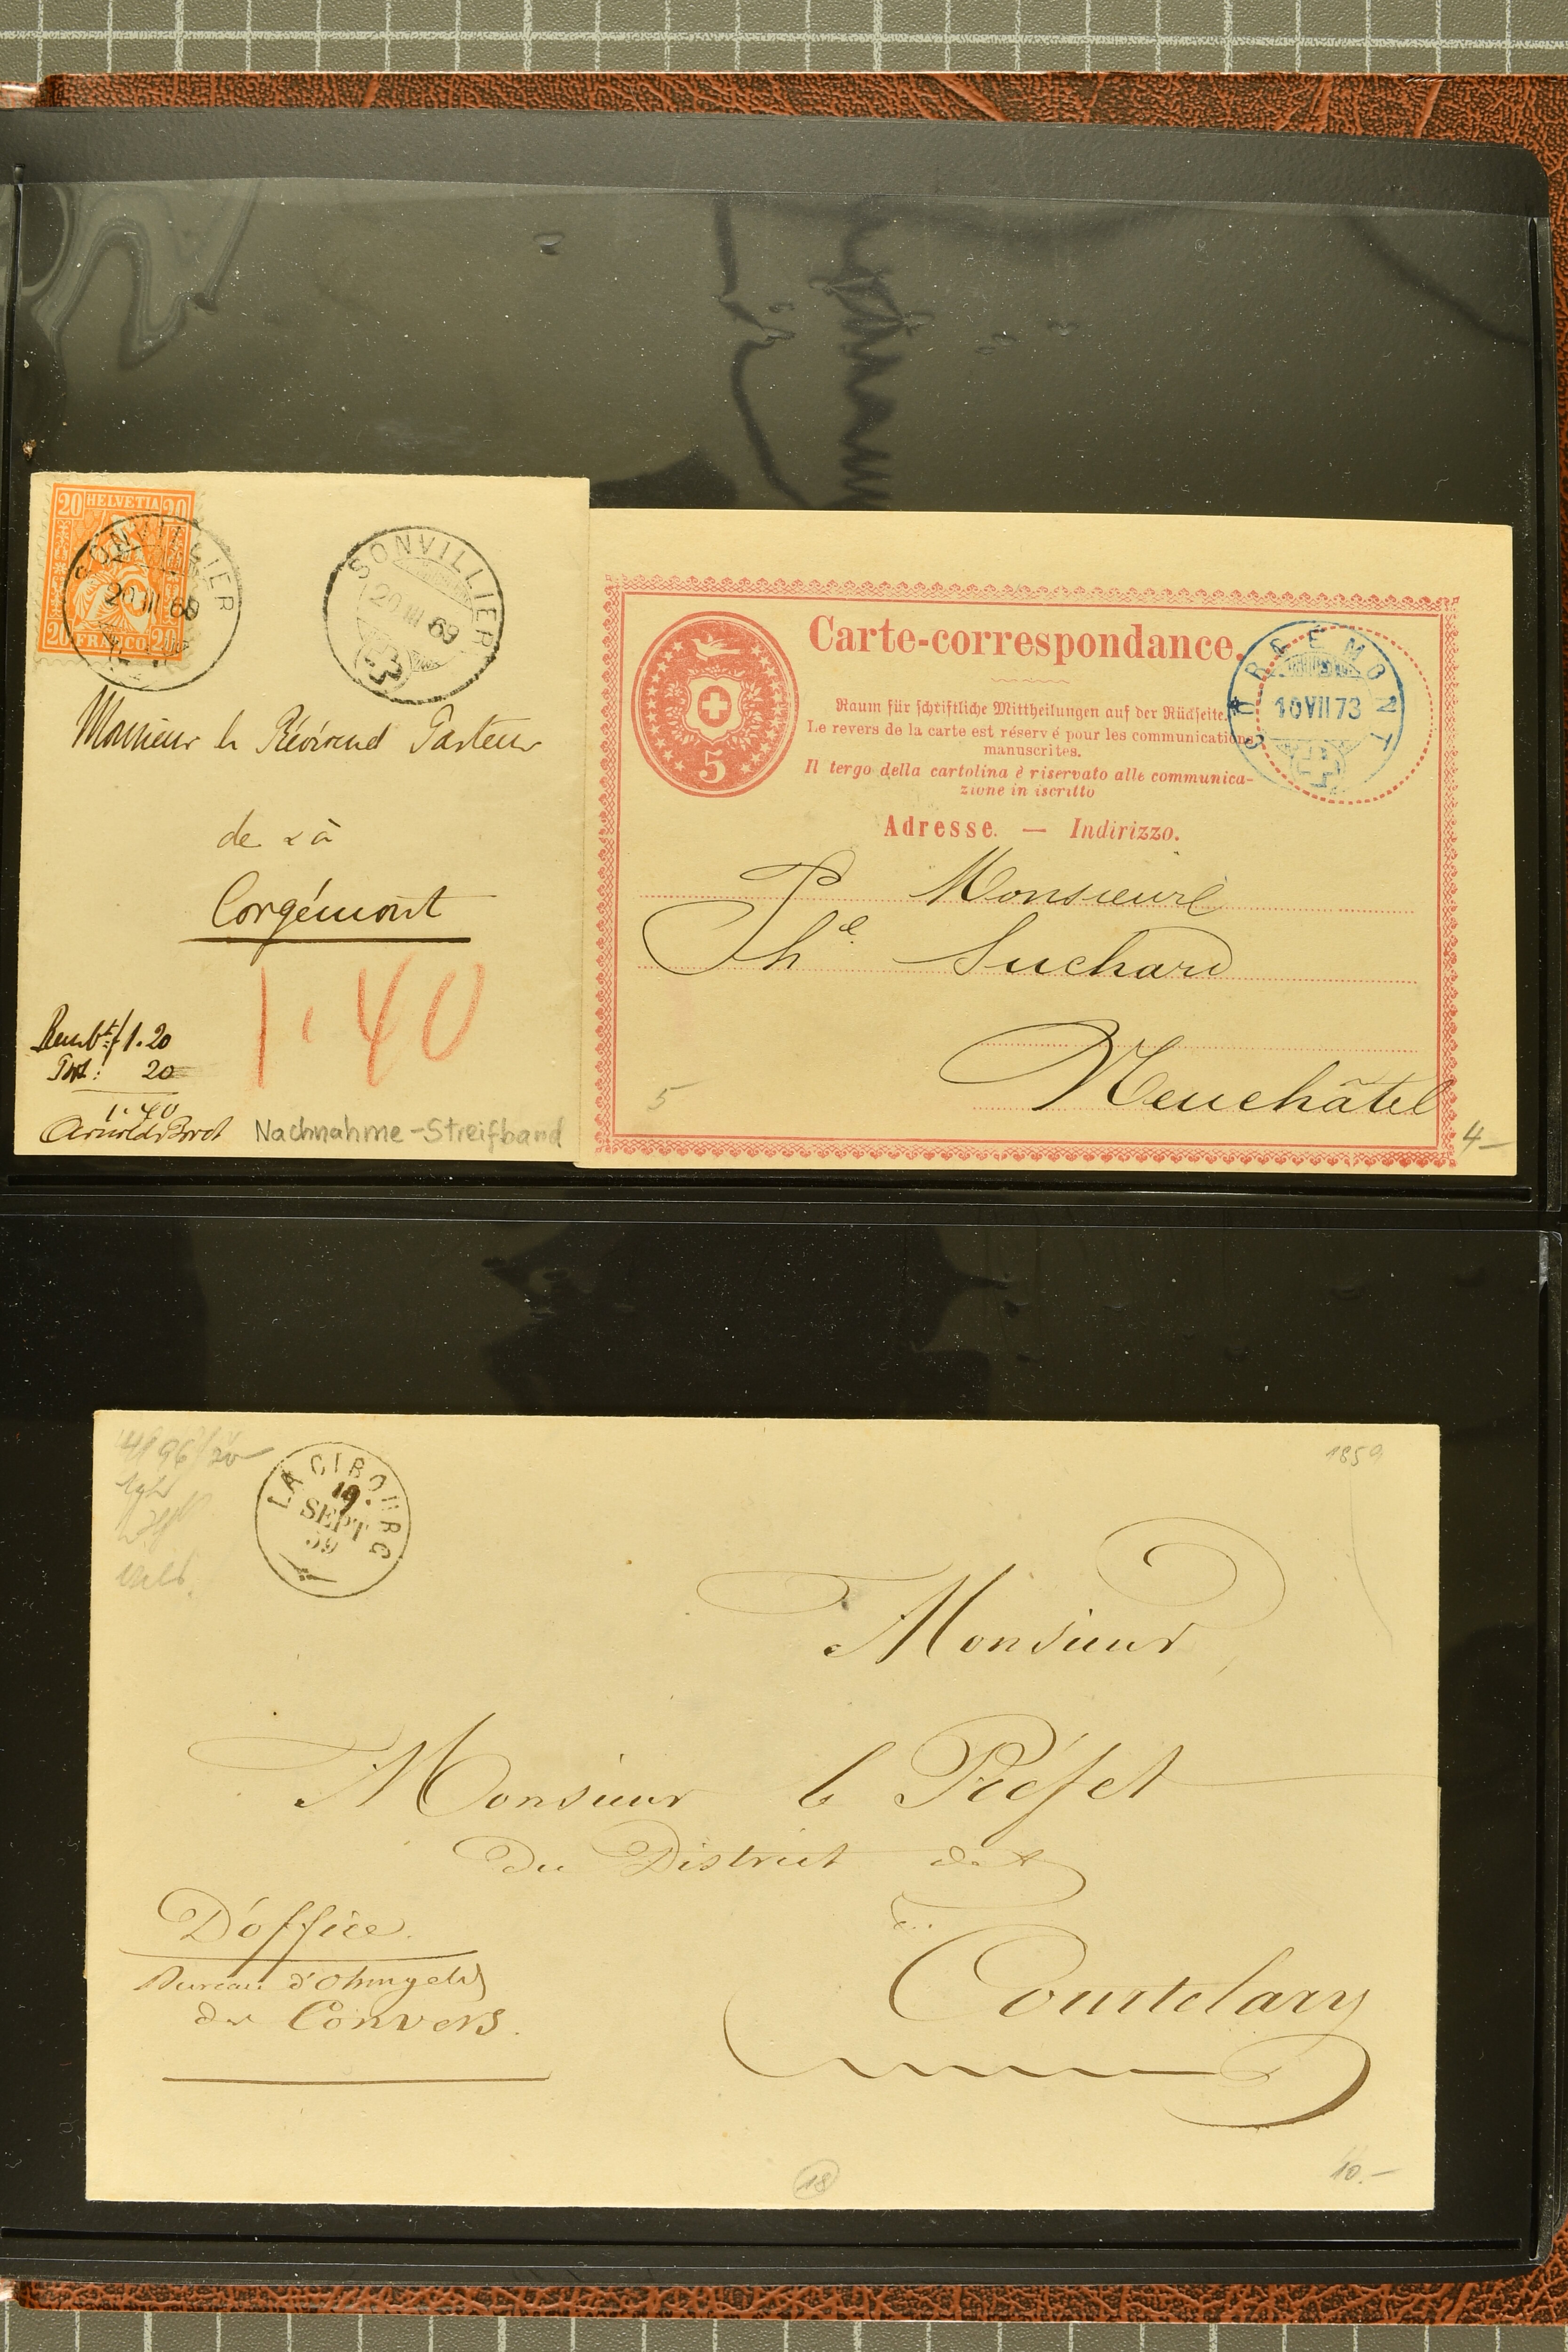 20 HELVETIA 20
20 FRANCO 20
SONVILLIER
20 III 69
SONVILLIER
20 III 69
Monsieur le Révérend Pasteur
de & à
Corgémont
1.40
Rembt: f 1.20
Port: 20
1.40
Nachnahme-Streifband
Carte-correspondance.
5
Raum für schriftliche Mittheilungen auf der Rückseite.
Le revers de la carte est réservé pour les communications
manuscrites.
Il tergo della cartolina è riservato alle communica-
zione in iscritto
Adresse. — Indirizzo.
CORGÉMONT
10 VII 73
Monsieur
Ph^e. Suchard
Neuchâtel
5
4-
1859
LA CIBOURG
19
SEPT
59
Monsieur
Monsieur le Préfet
du District de
Courtelary
D'office.
Bureau d'Ohmgeld
des Convers.
18
10.-